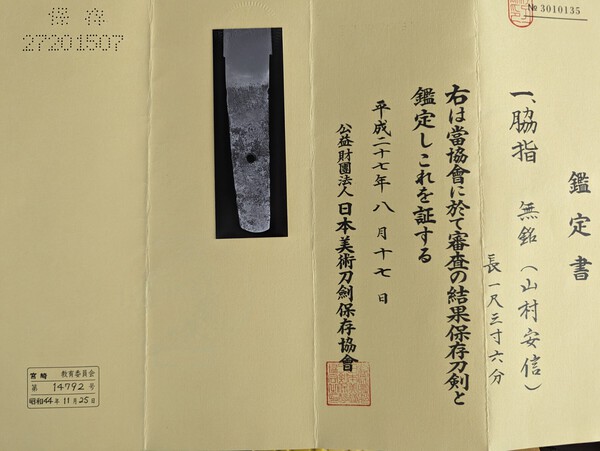 № 3010135
鑑定書
一、脇指 無銘(山村安信)
長一尺三寸六分
右は當協會に於て審査の結果保存刀剣と
鑑定しこれを証する
平成二十七年八月十七日
公益財團法人日本美術刀劍保存協會
保存
27201507
宮崎 教育委員会
第 14792 号
昭和44年11月25日